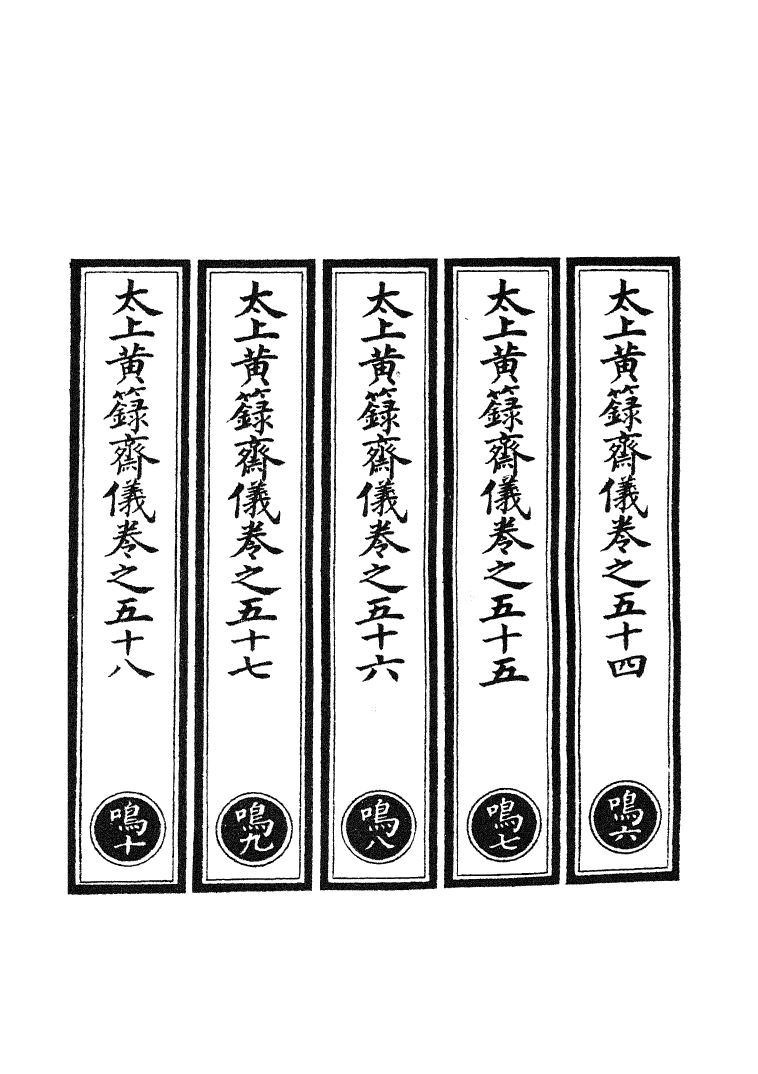 太上黄籙齋儀卷之五十四
鳴六
太上黄籙齋儀卷之五十五
鳴七
太上黄籙齋儀卷之五十六
鳴八
太上黄籙齋儀卷之五十七
鳴九
太上黄籙齋儀卷之五十八
鳴十